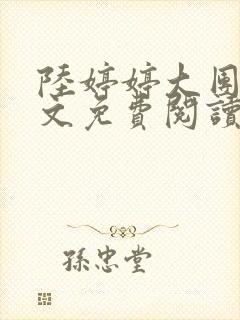 陸婷婷大團
文免費閱讀
孫忠堂